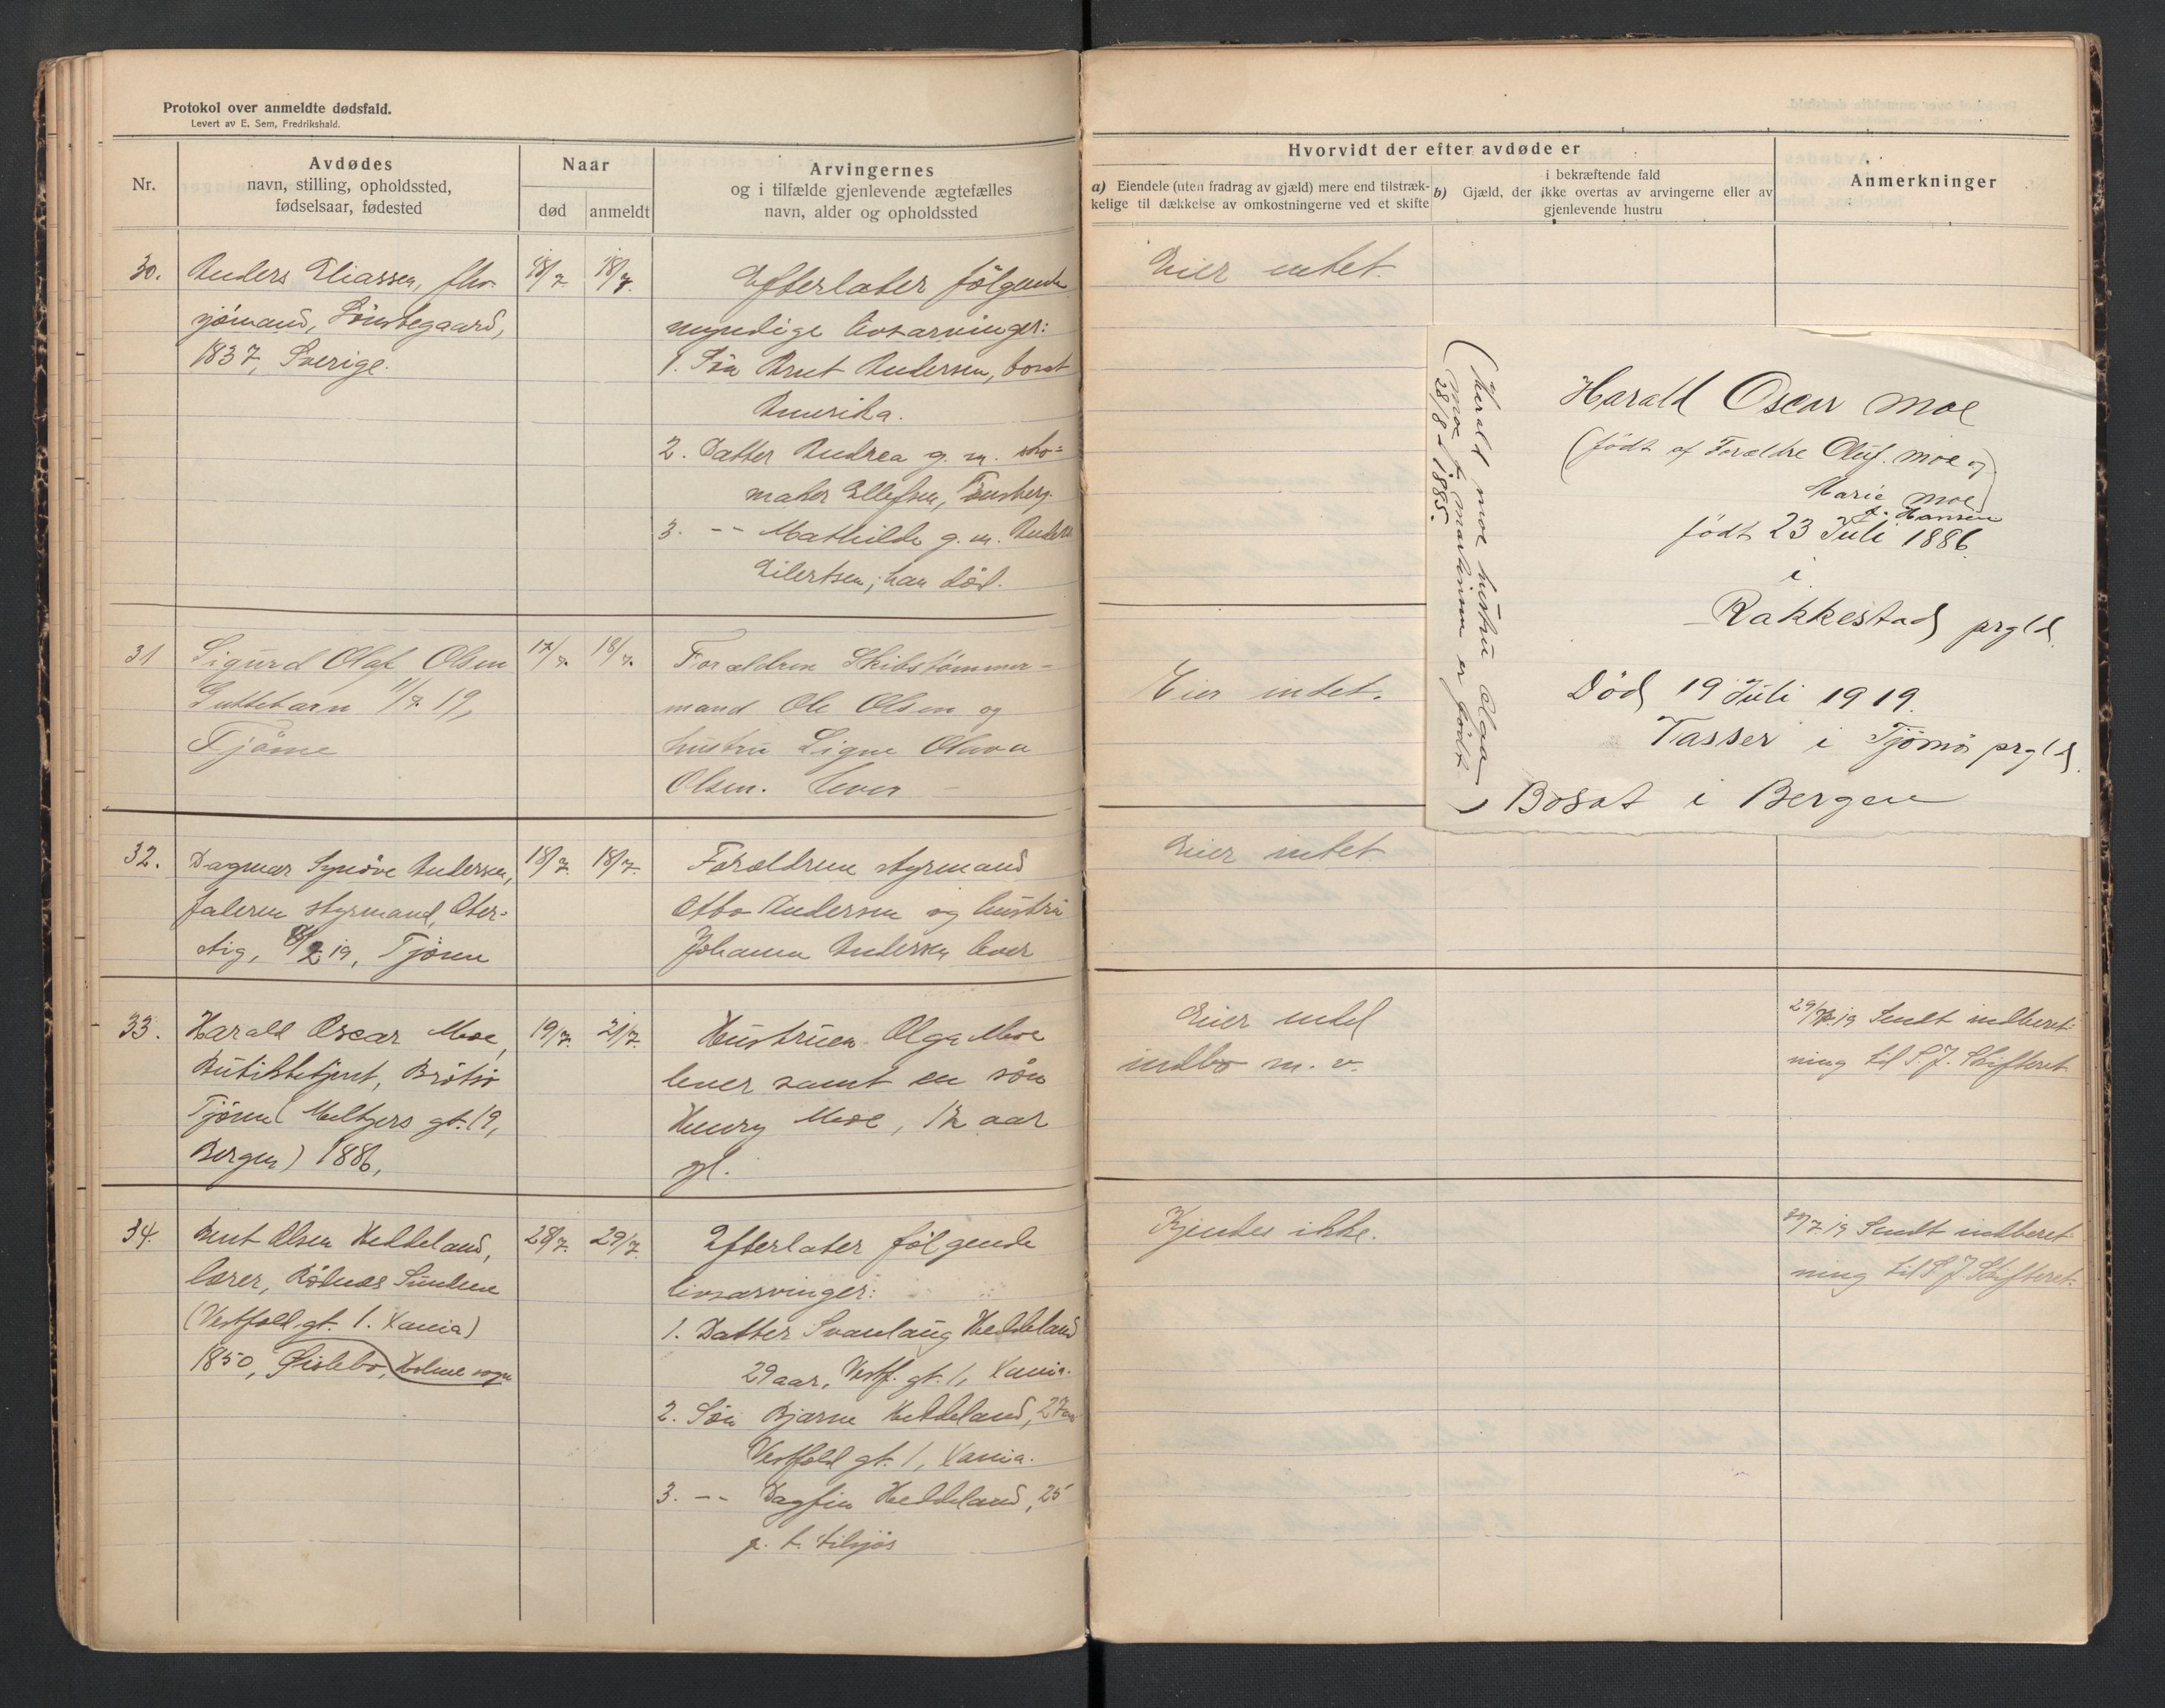 Protokol over anmeldte dødsfald.
Levert av E. Sem, Fredrikshald.
Nr.
Avdødes
navn, stilling, opholdssted,
fødselsaar, fødested
Naar
død
anmeldt
Arvingernes
og i tilfælde gjenlevende ægtefælles
navn, alder og opholdssted
30.
Anders Eliassen, fhv.
sjömand, Sönstegaard,
1837, Sverige.
18/7.
18/7.
Efterlater følgende
myndige livsarvinger:
1. Sön Brut Andersen, bosat
Amerika.
2. Datter Andrea g. m. sko=
maker Ellefsen, Tønsberg.
3. -- Mathilde g. m. Anders
Eilertsen; han död.
31
Sigurd Olaf Olsen
Guttebarn 11/7. 19,
Tjøme
17/7.
18/7.
Forældren Skibstömmer-
mand Ole Olsen og
hustru Signe Olava
Olsen. lever
32.
Dagmar Synöve Andersen,
faleren styrmand, Oter-
stig, 8/2 19, Tjöme
18/7.
18/7.
Forældrene styrmand
Otto Andersen og hustru
Johanna Andersen lever
33.
Harald Oscar Moe,
Butikbetjent, Brötsö
Tjöme (Meltzers gt. 19,
Bergen) 1886,
19/7.
21/7.
Hustruen Olga Moe
lever samt en sön
Henry Moe, 1½ aar
gl.
34.
Bent Olsen Heddeland,
lærer, Rödnæs Sundene
(Vestfold gt. 1. Xania)
1850, Øislebö, Holme sogn
28/7.
29/7.
Efterlater følgende
livsarvinger:
1. Datter Svanlaug Heddeland
29 aar, Vestf. gt. 1, Xania.
2. Sön Bjarne Heddeland, 27 aar
Vestfold gt. 1, Xania.
3. -- Dagfin Heddeland, 25
p. t. tilsjös
Hvorvidt der efter avdøde er
a) Eiendele (uten fradrag av gjæld) mere end tilstræk-
kelige til dækkelse av omkostningerne ved et skifte
b) Gjæld, der ikke overtas av arvingerne eller av
i bekræftende fald
gjenlevende hustru
Anmerkninger
Eier intet.
Eier intet.
Eier intet.
Eier intet
indbo m. v.
29/7. 19 Sendt indberet-
ning til S. J. Skifteret
Kjendes ikke.
29/7 19 Sendt indberet-
ning til S J. Skifteret.
Harald Oscar Moe
(födt af Forældre Oluf. Moe og
Marie Moe)
f. Hansen
födt 23 Juli 1886.
i
Rakkestad prgld.
Död 19 Juli 1919.
Vasser i Tjömö prgld.
Bosat i Bergen
(Harald Moe hustru Olga
Moe f. Martinsen er födt
28/8 1885.)